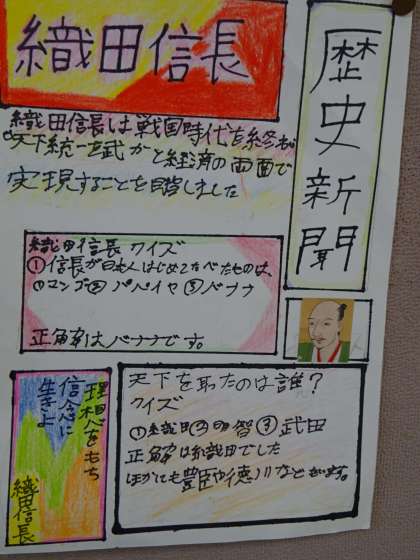 歴史新聞
織田信長
織田信長は戦国時代を終わ
天下統一を武力と経済の両面で
実現することを目指しました
織田信長クイズ
①信長が日本人はじめてたべたものは、
①マンゴ②パパイヤ③バナナ
正解はバナナです。
天下を取ったのは誰？
クイズ
①織田②明智③武田
正解は織田でした
ほかにも豊臣や徳川などもいます。
理想をもち
信念に
生きよ
織田信長